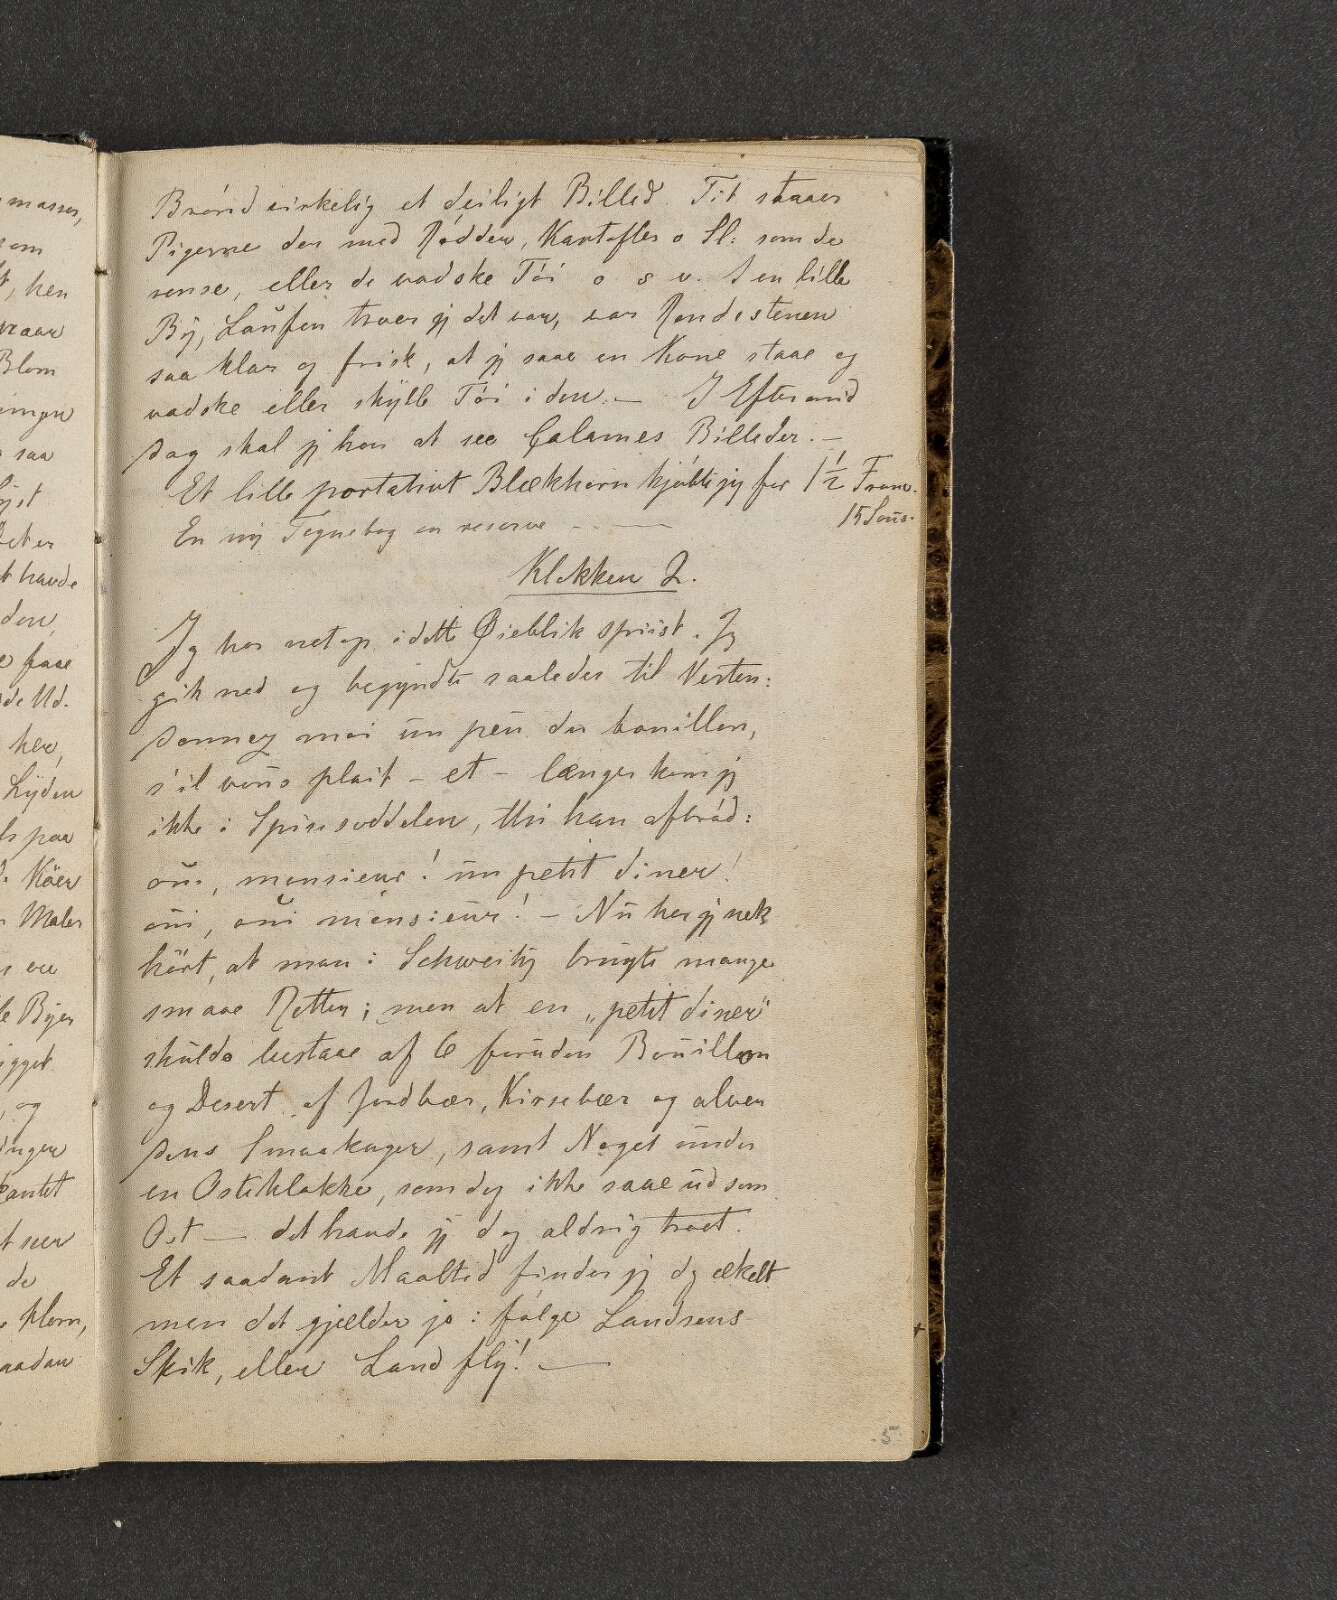 masser,
som
hen
Blom
saa
havde
den,
faae
de Ud-
her,
Lyden
paa
Köer
Maler
Byer
ygget
, og
nger
t seer
de
klem,
aadan
Brönd virkelig et deiligt Billed. Tit staaer
Pigerne der med Rödder, Kartofler o Sl: som de
rense, eller de vadske Töi o s v. I en lille
By, Laufen troer jg det var, var Rendestenen
saa klar og frisk, at jg saae en Kone staae og
vadske eller skylle Töi i den. — I Eftermid
dag skal jg hen at see Calames Billeder. —
Et lille portativt Blækhorn kjöbte jg for 1 1/2 Franc.
En ny Tegnebog en reserve - - — 15 Sous.
Klokken 2.
Jg har netop i dette Øieblik spiist. Jg
gik ned og begyndte saaledes til Verten:
donnez moi un peu du bouillon,
s'il vous plait – et – længer kom jg
ikke i Spiseseddelen, thi han afbröd:
oui, monsieur! un petit diner!
oui, oui monsieur! – Nu har jg nok
hört, at man i Schweitz brugte mange
smaae Retter; men at en „petit diner"
skulde bestaae af 6 foruden Bouillon
og Desert af Jordbær, Kirsebær og alver
dens Smaakager, samt Noget under
en Osteklokke, som dog ikke saae ud som
Ost — det havde jg dog aldrig troet.
Et saadant Maaltid finder jg dg ækelt
men det gjælder jo: fölge Landsens
Skik, eller Land fly! —
5